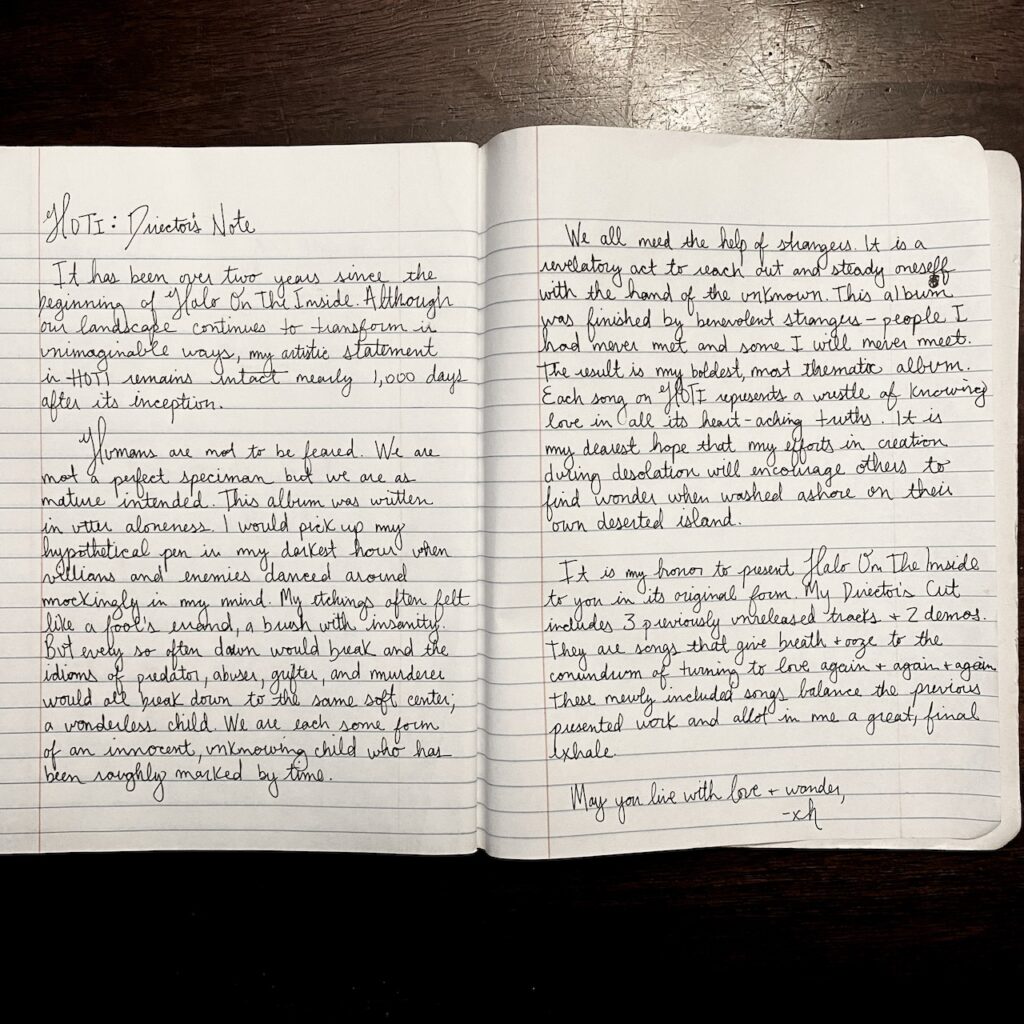 HOTI: Director's Note
It has been over two years since the
beginning of Halo On The Inside. Although
our landscape continues to transform in
unimaginable ways, my artistic statement
in HOTI remains intact nearly 1,000 days
after its inception.
Humans are not to be feared. We are
not a perfect speciman but we are as
nature intended. This album was written
in utter aloneness. I would pick up my
hypothetical pen in my darkest hour when
villians and enemies danced around
mockingly in my mind. My etchings often felt
like a fool's errand, a brush with insanity.
But every so often dawn would break and the
idioms of predator, abuser, grifter, and murderer
would all break down to the same soft center;
a wonderless child. We are each some form
of an innocent, unknowing child who has
been roughly marked by time.
We all need the help of strangers. It is a
revelatory act to reach out and steady oneself
with the hand of the unknown. This album
was finished by benevolent strangers - people I
had never met and some I will never meet.
The result is my boldest, most thematic album.
Each song on HOTI represents a wrestle of knowing
love in all its heart-aching truths. It is
my dearest hope that my efforts in creation
during desolation will encourage others to
find wonder when washed ashore on their
own deserted island.
It is my honor to present Halo On The Inside
to you in its original form. My Director's Cut
includes 3 previously unreleased tracks + 2 demos.
They are songs that give breath + ooze to the
conundrum of turning to love again + again + again
These newly included songs balance the previous
presented work and allot in me a great, final
exhale.
May you live with love + wonder,
-xh